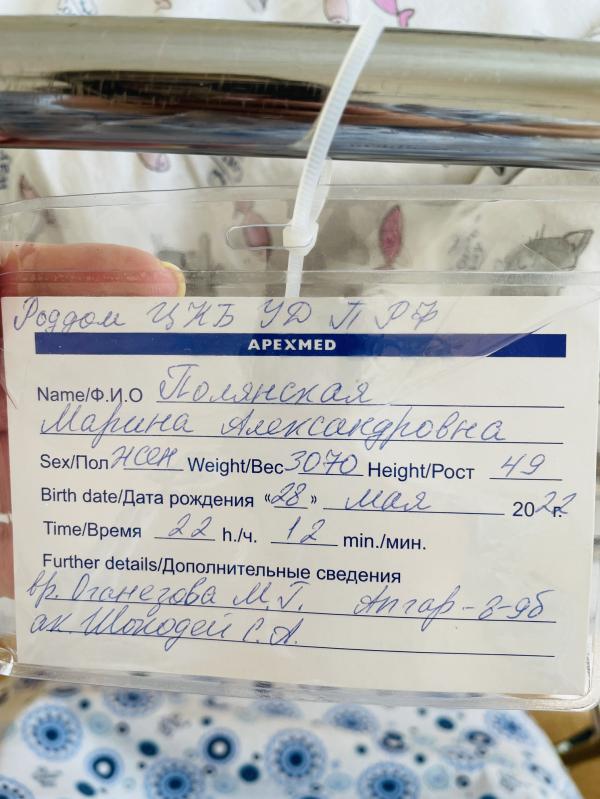 Роддом ЦКБ УД П РФ
APEXMED
Name/Ф.И.О Полянская
Марина Александровна
Sex/Пол жен Weight/Вес 3070 Height/Рост 49
Birth date/Дата рождения «28» мая 2022 г.
Time/Время 22 h./ч. 12 min./мин.
Further details/Дополнительные сведения
вр. Оганезова М.Г. Апгар-8-9б
ак. С.А.